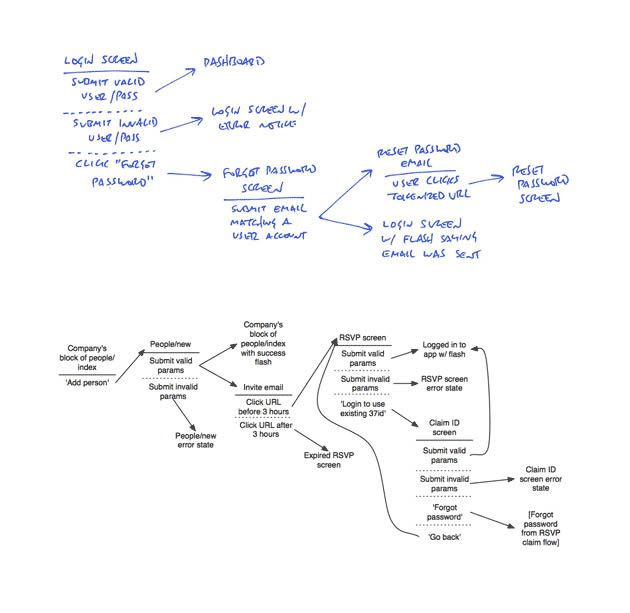 LOGIN SCREEN
SUBMIT VALID
USER/PASS
DASHBOARD
SUBMIT INVALID
USER/PASS
LOGIN SCREEN W/
ERROR NOTICE
CLICK "FORGET
PASSWORD"
FORGOT PASSWORD
SCREEN
SUBMIT EMAIL
MATCHING A
USER ACCOUNT
RESET PASSWORD
EMAIL
USER CLICKS
TOKENIZED URL
RESET
PASSWORD
SCREEN
LOGIN SCREEN
W/ FLASH SAYING
EMAIL WAS SENT
Company's
block of people/
index
'Add person'
People/new
Submit valid
params
Submit invalid
params
People/new
error state
Company's
block of
people/index
with success
flash
Invite email
Click URL
before 3 hours
Click URL after
3 hours
Expired RSVP
screen
RSVP screen
Submit valid
params
Submit invalid
params
'Login to use
existing 37id'
Logged in to
app w/ flash
RSVP screen
error state
Claim ID
screen
Submit valid
params
Submit invalid
params
'Forgot
password'
'Go back'
Claim ID
screen error
state
[Forgot
password
from RSVP
claim flow]